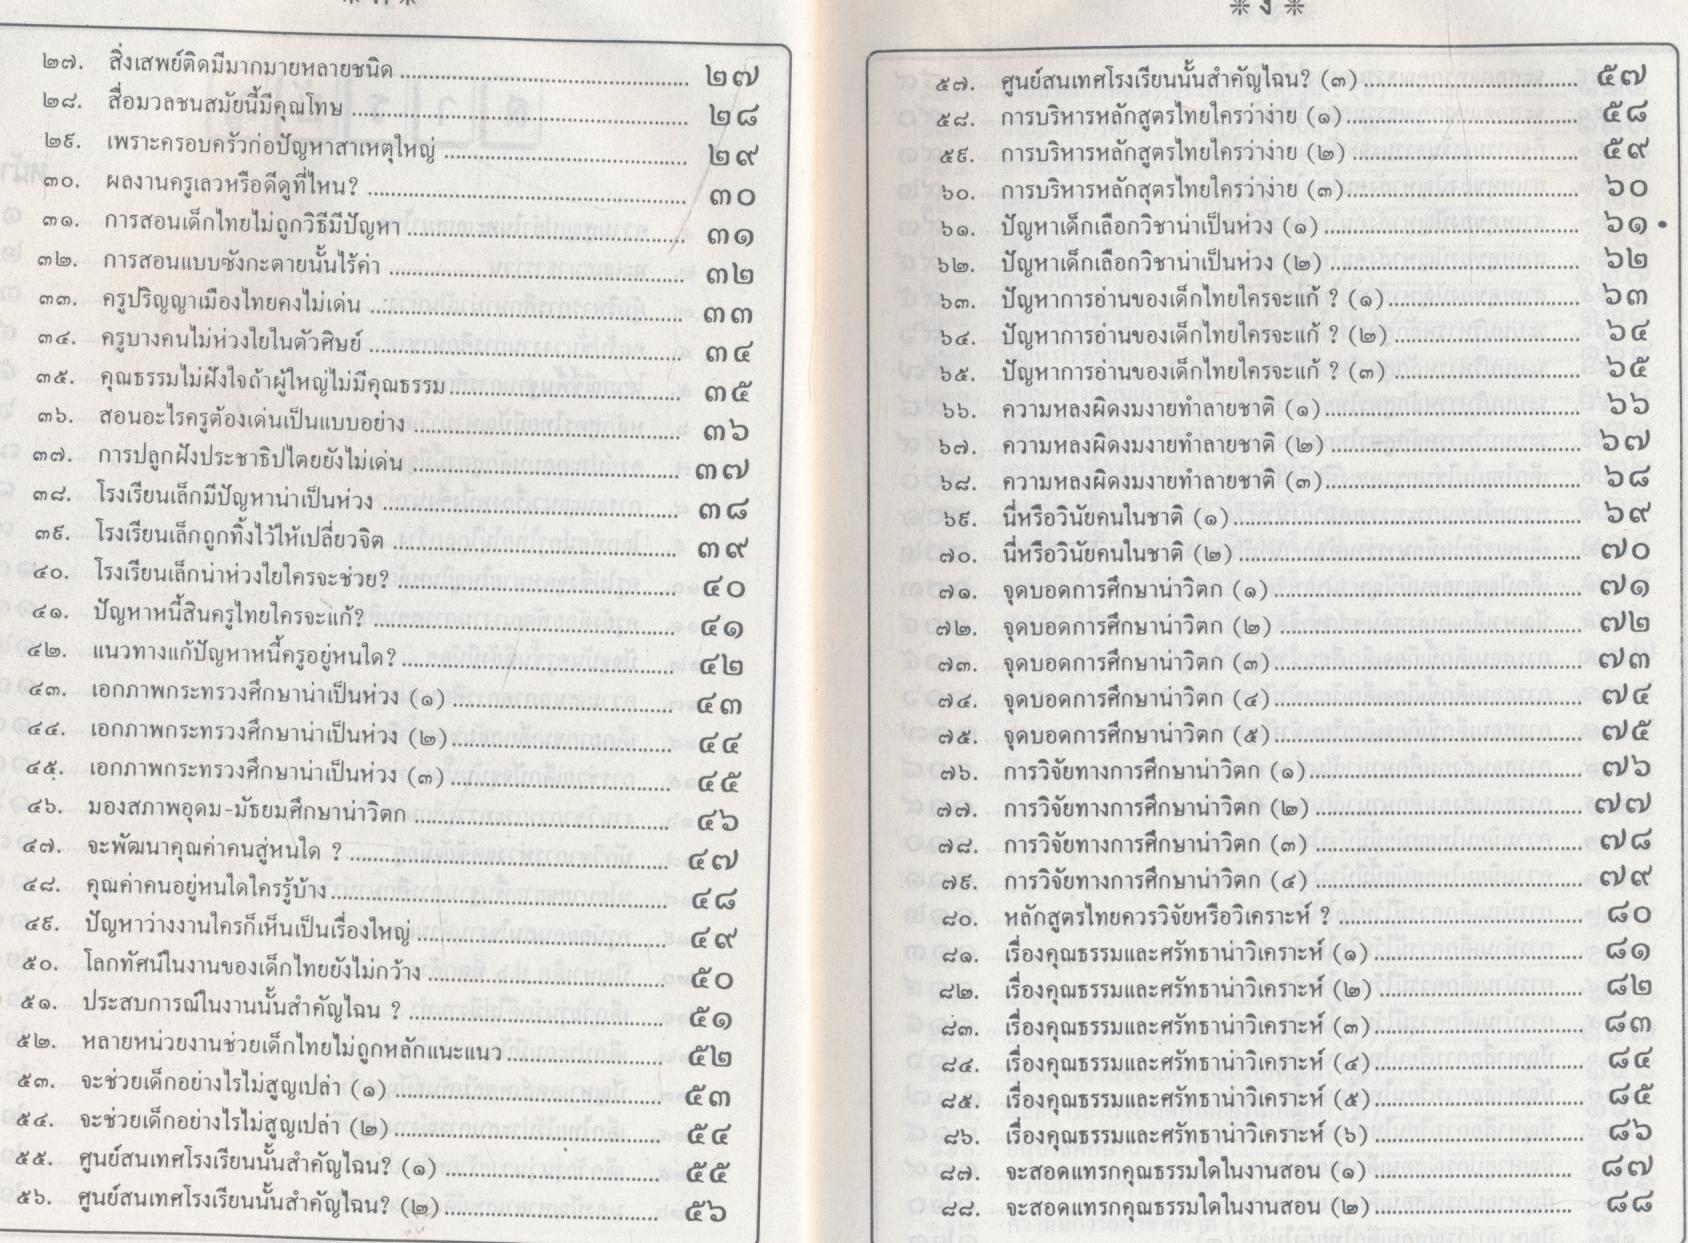 ๒๗. สิ่งเสพย์ติดมีมากมายหลายชนิด ๒๗
๒๘. สื่อมวลชนสมัยนี้มีคุณโทษ ๒๘
๒๙. เพราะครอบครัวก่อปัญหาสาเหตุใหญ่ ๒๙
๓๐. ผลงานครูเลวหรือดีดูที่ไหน? ๓๐
๓๑. การสอนเด็กไทยไม่ถูกวิธีมีปัญหา ๓๑
๓๒. การสอนแบบซังกะตายนั้นไร้ค่า ๓๒
๓๓. ครูปริญญาเมืองไทยคงไม่เด่น ๓๓
๓๔. ครูบางคนไม่ห่วงใยในตัวศิษย์ ๓๔
๓๕. คุณธรรมไม่ฝังใจถ้าผู้ใหญ่ไม่มีคุณธรรม ๓๕
๓๖. สอนอะไรครูต้องเด่นเป็นแบบอย่าง ๓๖
๓๗. การปลูกฝังประชาธิปไตยยังไม่เด่น ๓๗
๓๘. โรงเรียนเล็กมีปัญหาน่าเป็นห่วง ๓๘
๓๙. โรงเรียนเล็กถูกทิ้งไว้ให้เปลี่ยวจิต ๓๙
๔๐. โรงเรียนเล็กน่าห่วงใยใครจะช่วย? ๔๐
๔๑. ปัญหาหนี้สินครูไทยใครจะแก้? ๔๑
๔๒. แนวทางแก้ปัญหาหนี้ครูอยู่หนใด? ๔๒
๔๓. เอกภาพกระทรวงศึกษาน่าเป็นห่วง (๑) ๔๓
๔๔. เอกภาพกระทรวงศึกษาน่าเป็นห่วง (๒) ๔๔
๔๕. เอกภาพกระทรวงศึกษาน่าเป็นห่วง (๓) ๔๕
๔๖. มองสภาพอุดม-มัธยมศึกษาน่าวิตก ๔๖
๔๗. จะพัฒนาคุณค่าคนสู่หนใด ? ๔๗
๔๘. คุณค่าคนอยู่หนใดใครรู้บ้าง ๔๘
๔๙. ปัญหาว่างงานใครก็เห็นเป็นเรื่องใหญ่ ๔๙
๕๐. โลกทัศน์ในงานของเด็กไทยยังไม่กว้าง ๕๐
๕๑. ประสบการณ์ในงานนั้นสำคัญไฉน ? ๕๑
๕๒. หลายหน่วยงานช่วยเด็กไทยไม่ถูกหลักแนะแนว ๕๒
๕๓. จะช่วยเด็กอย่างไรไม่สูญเปล่า (๑) ๕๓
๕๔. จะช่วยเด็กอย่างไรไม่สูญเปล่า (๒) ๕๔
๕๕. ศูนย์สนเทศโรงเรียนนั้นสำคัญไฉน? (๑) ๕๕
๕๖. ศูนย์สนเทศโรงเรียนนั้นสำคัญไฉน? (๒) ๕๖
* ง *
๕๗. ศูนย์สนเทศโรงเรียนนั้นสำคัญไฉน? (๓) ๕๗
๕๘. การบริหารหลักสูตรไทยใครว่าง่าย (๑) ๕๘
๕๙. การบริหารหลักสูตรไทยใครว่าง่าย (๒) ๕๙
๖๐. การบริหารหลักสูตรไทยใครว่าง่าย (๓) ๖๐
๖๑. ปัญหาเด็กเลือกวิชาน่าเป็นห่วง (๑) ๖๑
๖๒. ปัญหาเด็กเลือกวิชาน่าเป็นห่วง (๒) ๖๒
๖๓. ปัญหาการอ่านของเด็กไทยใครจะแก้ ? (๑) ๖๓
๖๔. ปัญหาการอ่านของเด็กไทยใครจะแก้ ? (๒) ๖๔
๖๕. ปัญหาการอ่านของเด็กไทยใครจะแก้ ? (๓) ๖๕
๖๖. ความหลงผิดงมงายทำลายชาติ (๑) ๖๖
๖๗. ความหลงผิดงมงายทำลายชาติ (๒) ๖๗
๖๘. ความหลงผิดงมงายทำลายชาติ (๓) ๖๘
๖๙. นี่หรือวินัยคนในชาติ (๑) ๖๙
๗๐. นี่หรือวินัยคนในชาติ (๒) ๗๐
๗๑. จุดบอดการศึกษาน่าวิตก (๑) ๗๑
๗๒. จุดบอดการศึกษาน่าวิตก (๒) ๗๒
๗๓. จุดบอดการศึกษาน่าวิตก (๓) ๗๓
๗๔. จุดบอดการศึกษาน่าวิตก (๔) ๗๔
๗๕. จุดบอดการศึกษาน่าวิตก (๕) ๗๕
๗๖. การวิจัยทางการศึกษาน่าวิตก (๑) ๗๖
๗๗. การวิจัยทางการศึกษาน่าวิตก (๒) ๗๗
๗๘. การวิจัยทางการศึกษาน่าวิตก (๓) ๗๘
๗๙. การวิจัยทางการศึกษาน่าวิตก (๔) ๗๙
๘๐. หลักสูตรไทยควรวิจัยหรือวิเคราะห์ ? ๘๐
๘๑. เรื่องคุณธรรมและศรัทธาน่าวิเคราะห์ (๑) ๘๑
๘๒. เรื่องคุณธรรมและศรัทธาน่าวิเคราะห์ (๒) ๘๒
๘๓. เรื่องคุณธรรมและศรัทธาน่าวิเคราะห์ (๓) ๘๓
๘๔. เรื่องคุณธรรมและศรัทธาน่าวิเคราะห์ (๔) ๘๔
๘๕. เรื่องคุณธรรมและศรัทธาน่าวิเคราะห์ (๕) ๘๕
๘๖. เรื่องคุณธรรมและศรัทธาน่าวิเคราะห์ (๖) ๘๖
๘๗. จะสอดแทรกคุณธรรมใดในงานสอน (๑) ๘๗
๘๘. จะสอดแทรกคุณธรรมใดในงานสอน (๒) ๘๘